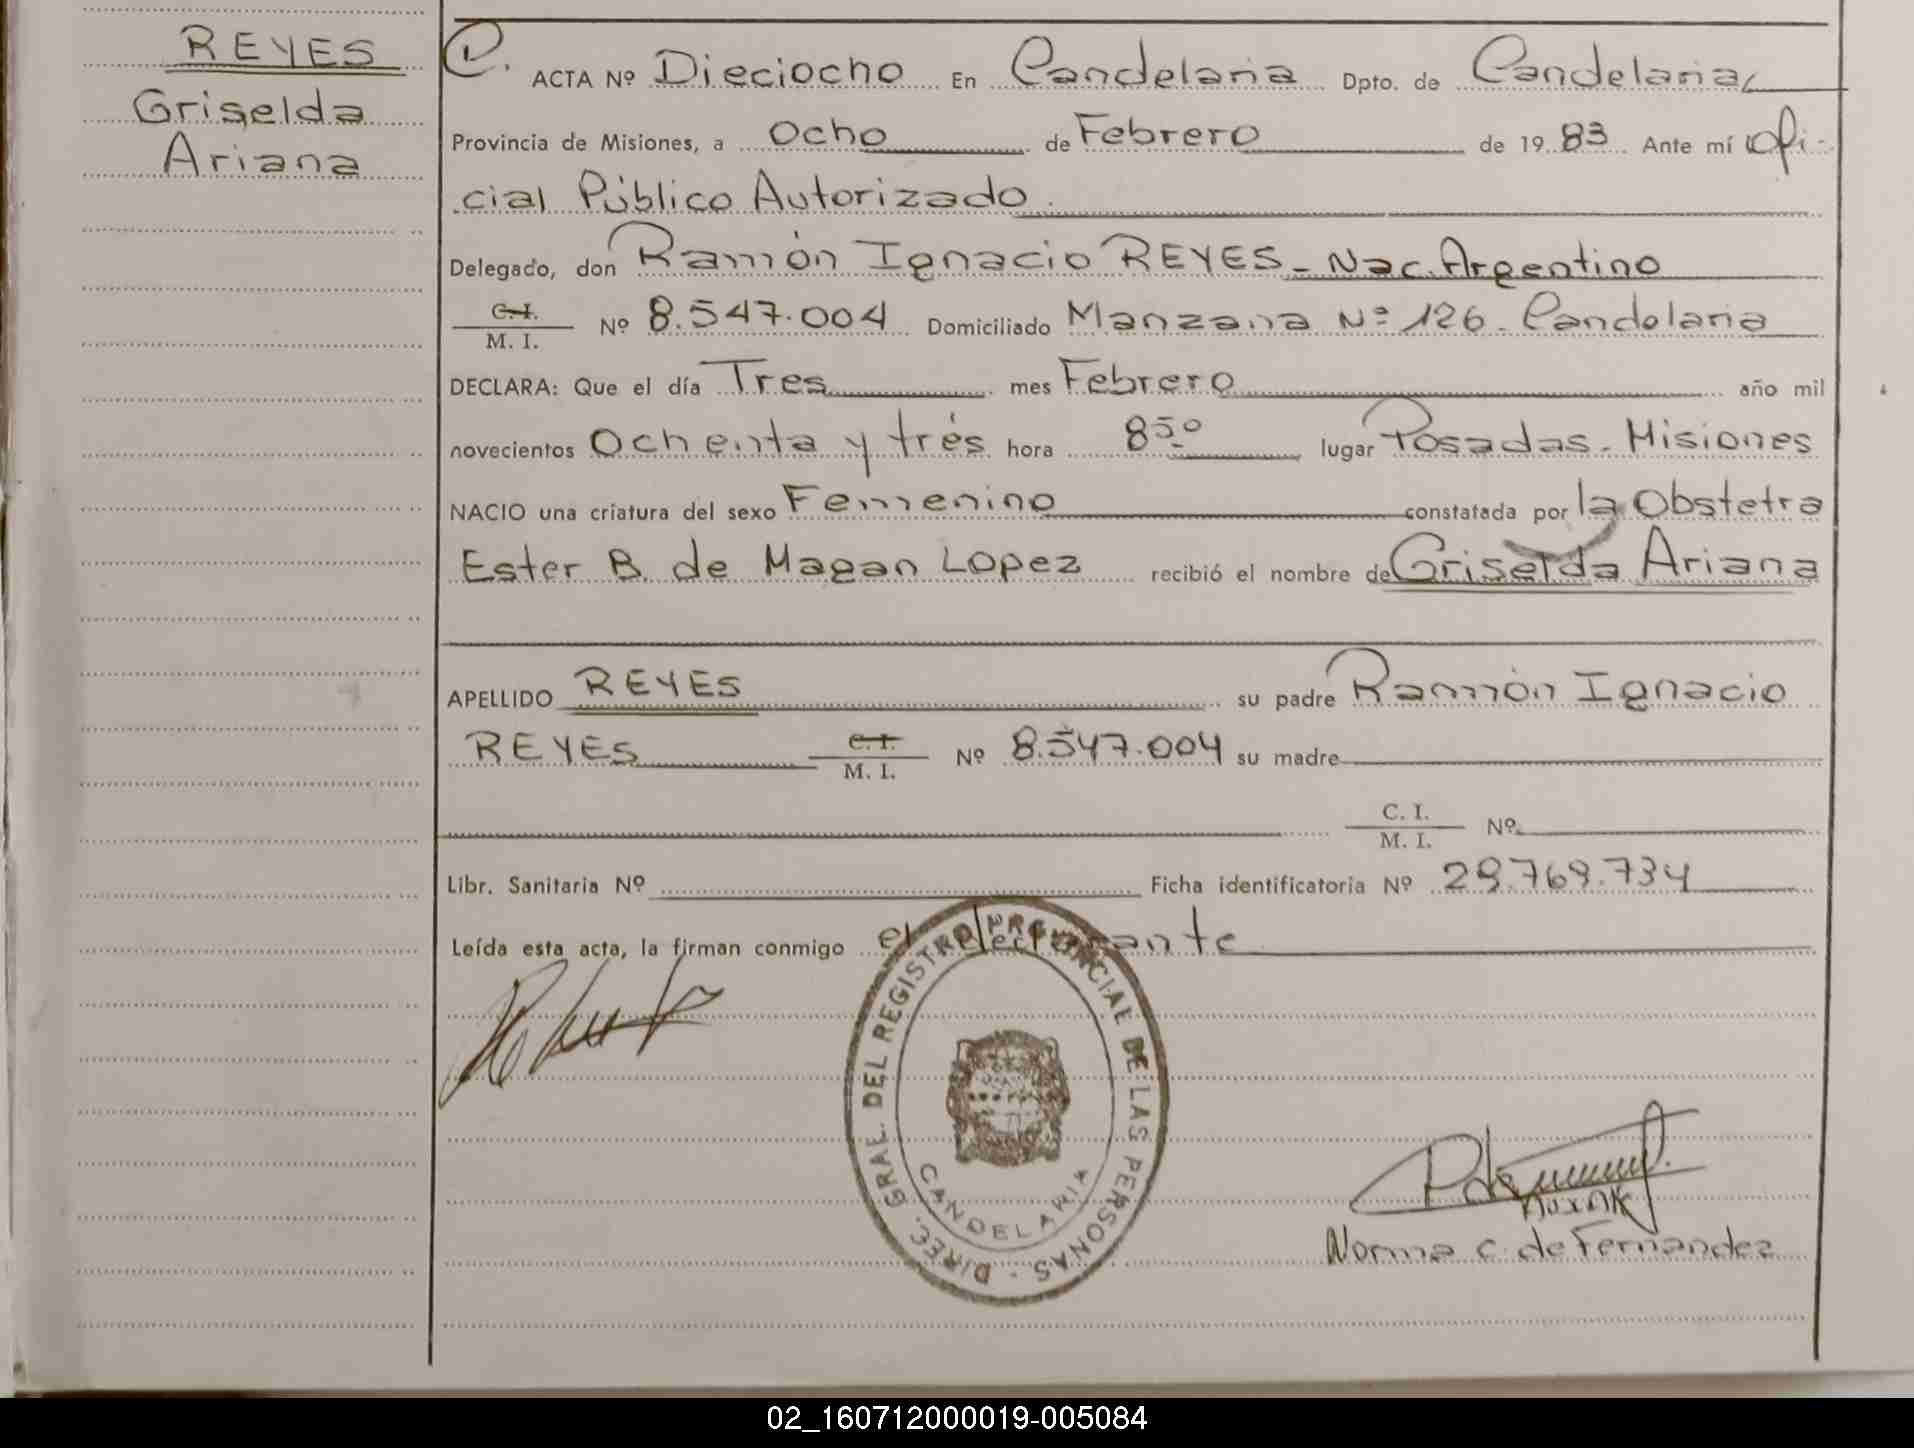 REYES
Griselda
Ariana
ACTA Nº Dieciocho En Candelaria Dpto. de Candelaria,
Provincia de Misiones, a Ocho de Febrero de 1983 Ante mí Ofi-
cial Público Autorizado.
Delegado, don Ramón Ignacio REYES - Nac. Argentino
C.I.
M. I. Nº 8.547.004 Domiciliado Manzana Nº 126. Candelaria
DECLARA: Que el día Tres mes Febrero año mil
novecientos Ochenta y trés hora 8⁵⁰ lugar Posadas. Misiones
NACIO una criatura del sexo Femenino constatada por la Obstetra
Ester B. de Magan Lopez recibió el nombre de Griselda Ariana
APELLIDO REYES su padre Ramón Ignacio
REYES C.I.
M. I. Nº 8.547.004 su madre
C. I.
M. I. Nº
Libr. Sanitaria Nº Ficha identificatoria Nº 29.769.734
Leída esta acta, la firman conmigo el
DIREC. GRAL. DEL REGISTRO PROVINCIAL DE LAS PERSONAS -
CANDELARIA
Norma C. de Fernandez
02_160712000019-005084